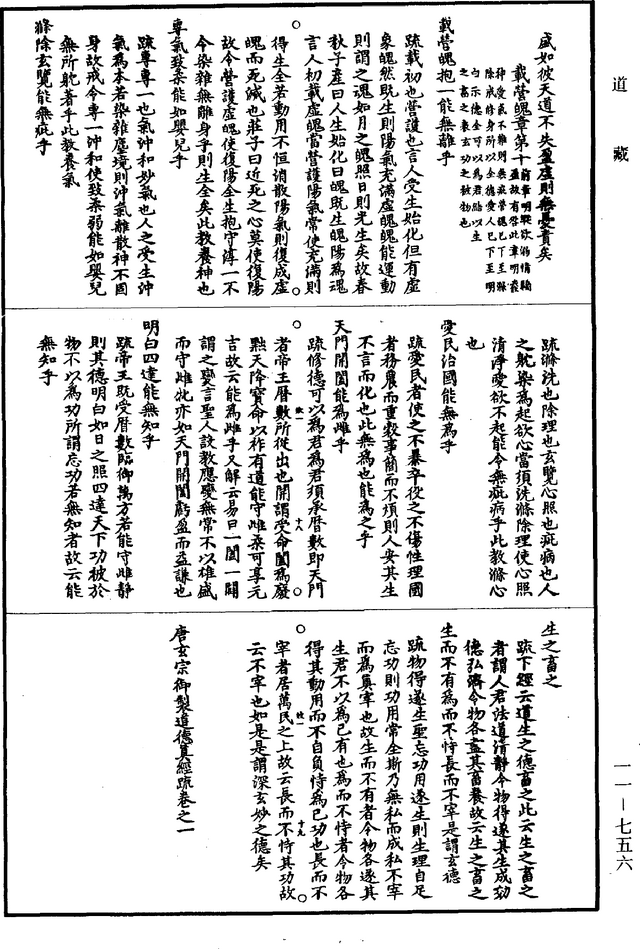 道藏
盛如彼天道不失盈虛則無憂責矣
載營魄章第十
前章明驕欲溺情輪
盈故有咎此章明養
神愛氣不雜則無疵營魄已下至滌
除戒修身所以全德愛人已下至明
白示德全可以為君結以生
之畜之表玄功之被物也
載營魄抱一能無離乎
疏載初也營護也言人受生始化但有虛
象魄然既生則陽氣充滿虛魄魄能運動
則謂之魂如月之魄照日則光生矣故春
秋子產曰人生始化曰魄既生魄陽為魂
言人初載虛魄當營護陽氣常使充滿則
得生全若動用不恒消散陽氣則復成虛
魄而死滅也莊子曰近死之心莫使復陽
故令營護虛魄使復陽全生抱守淳一不
令染雜無離身乎則生全矣此教養神也
專氣致柔能如嬰兒乎
疏專專一也氣沖和妙氣也人之受生沖
氣為本若染雜塵境則沖氣離散神不固
身故戒令專一沖和使致柔弱能如嬰兒
無所躭著乎此教養氣
滌除玄覽能無疵乎
疏滌洗也除理也玄覽心照也疵病也人
之躭染為起欲心當須洗滌除理使心照
清淨愛欲不起能令無疵病乎此教滌心
也
愛民治國能無為乎
疏愛民者使之不暴卒役之不傷性理國
者務農而重穀事簡而不煩則人安其生
不言而化也此無為也能為之乎
天門開闔能為雌乎
疏修德可以為君為君須承曆數即天門
者帝王曆數所從出也開謂受命闔為廢
黜天降寶命以祚有道能守雌柔可享元
吉故云能為雌乎又解云易曰一闔一闢
謂之變言聖人設教應變無常不以雄盛
而守雌牝亦如天門開闔虧盈而益謙也
明白四達能無知乎
疏帝王既受曆數臨御萬方若能守雌靜
則其德明白如日之照四達天下功被於
物不以為功所謂忘功若無知者故云能
無知乎
生之畜之
疏下經云道生之德畜之此云生之畜之
者謂人君法道清靜令物得遂其生成効
德弘濟令物各盡其畜養故云生之畜之
生而不有為而不恃長而不宰是謂玄德
疏物得遂生聖忘功用遂生則生理自足
忘功則功用常全斯乃無私而成私不宰
而為真宰也故生而不有者令物各遂其
生君不以為已有也為而不恃者令物各
得其動用而不自負恃為已功也長而不
宰者居萬民之上故云長而不恃其功故
云不宰也如是是謂深玄妙之德矣
唐玄宗御製道德真經疏卷之一
一一－七五六